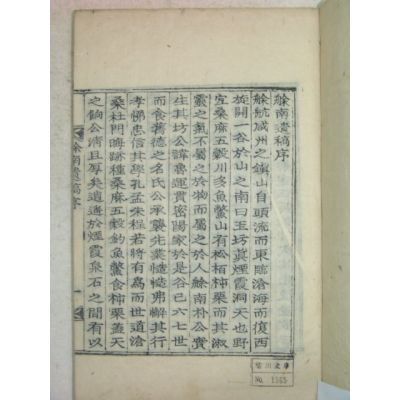 餘南遺稿序
餘航咸州之鎭山自頭流而東臨滄海而復西
旋開一谷於山之南曰玉坊眞煙霞洞天也野
宜桑麻五穀川多魚鱉山有松栢柿栗而其淑
靈之氣不屬之於物而屬之於人餘南朴公實
生其坊公諱魯運貫密陽家於是谷已六七世
而食舊德之名氏公承襲先業慥慥弗懈其行
孝悌忠信其學孔孟朱程若將有爲而世道滄
桑杜門晦跡種桑麻五穀釣魚鱉食柿栗蓋天
之餉公清且厚矣逍遙於煙霞泉石之間有以
餘南遺稿序
一
No. 1565